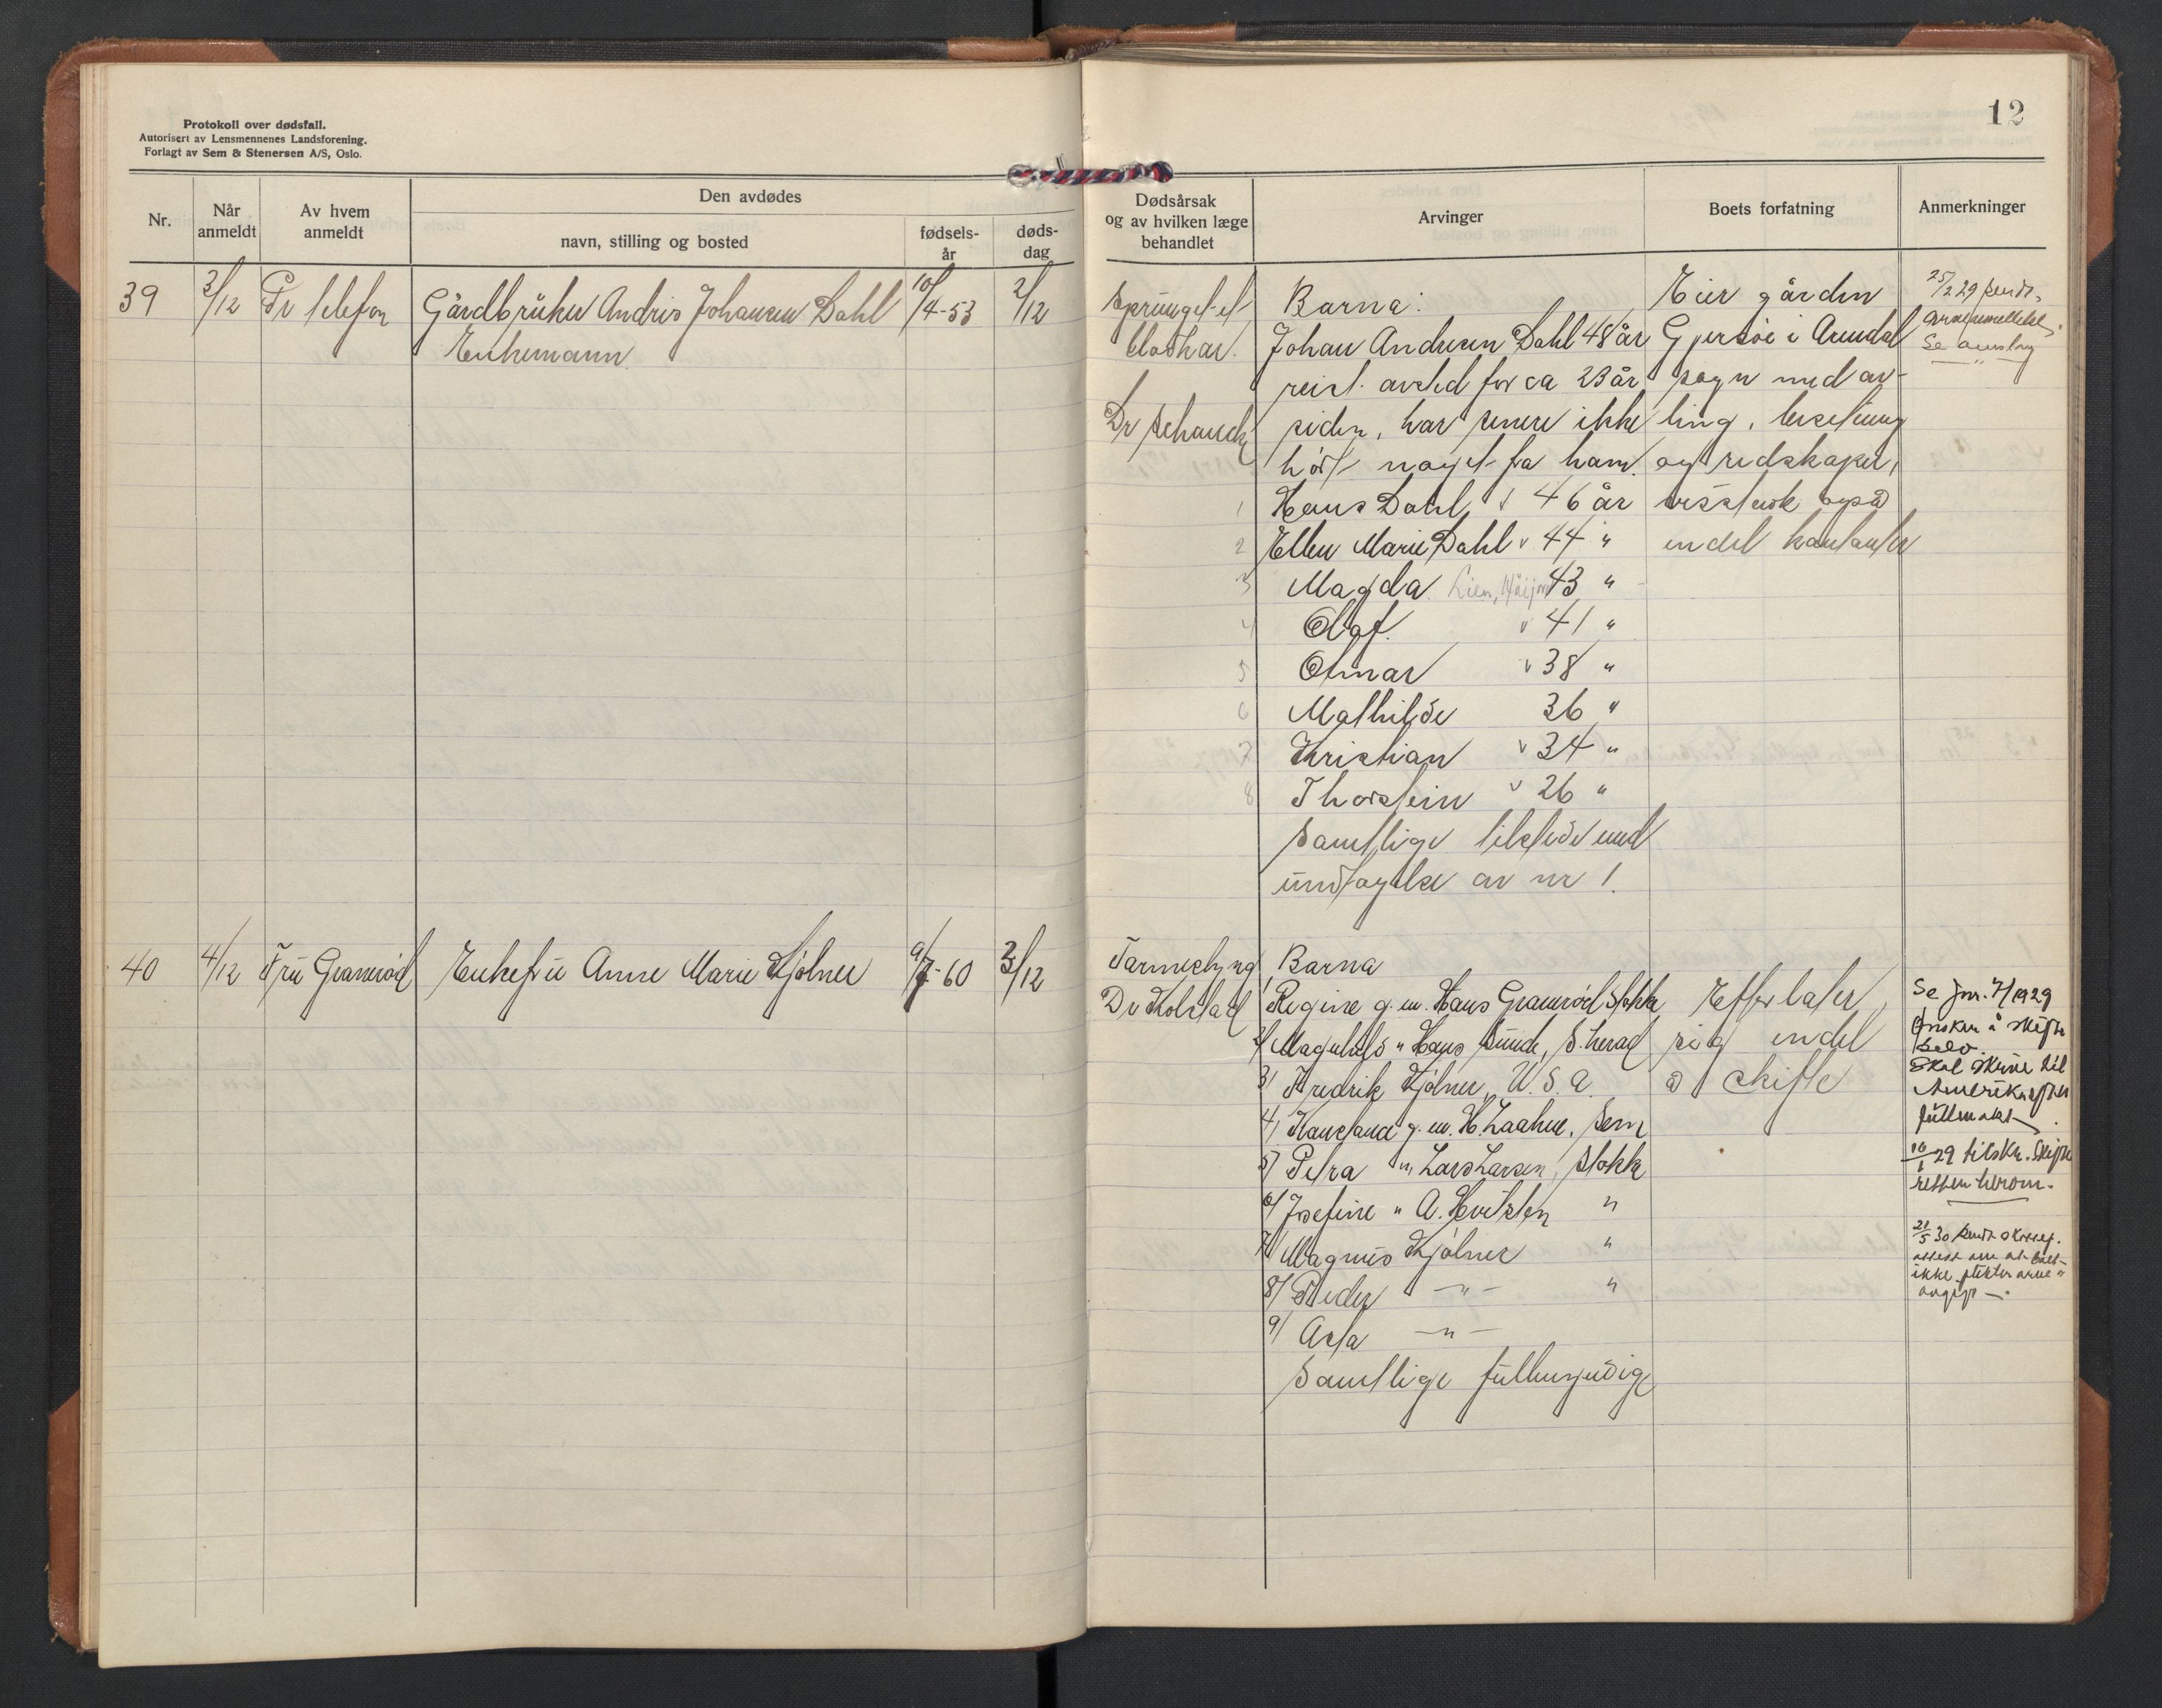 12
Protokoll over dødsfall.
Autorisert av Lensmennenes Landsforening.
Forlagt av Sem & Stenersen A/S, Oslo.
Nr.
Når anmeldt
Av hvem anmeldt
Den avdødes
navn, stilling og bosted
fødsels-år
døds-dag
Dødsårsak og av hvilken læge behandlet
Arvinger
Boets forfatning
Anmerkninger
39 3/12 Pr telefon Gårdbruker Andres Johansen Dahl 10/4-53 2/12
Enkemann
Sprunget et
Dr Schanche
Barna:
Johan Andresen Dahl 48 år
reist avsted for ca 23 år
siden, har senere ikke
hørt noget fra ham.
1 Hans Dahl v 46 år
2 Ellen Marie Dahl v 44 "
3 Magda Lien, 43 "
4 Olaf v 41 "
5 Otmar v 38 "
6 Mathilde 36 "
7 Kristian v 34 "
8 Thorstein v 26 "
samtlige tilstede med
undtagelse av nr 1.
Eier gården
i Arendal
sogn med av-
ling, besetning
og redskaper,
visstnok også
endel kontanter
25/2 29 sendt
arvemeldelse.
Se
40 4/12 Fru Gramrød Enkefru Anne Marie Kjølner 9/7-60 3/12
Tarmeslyng
Dr Kolstad
Barna
1/ Regine g.m. Hans Gramrød Stokke
2/ " Hans Sunde, S.herad
3/ Fredrik Kjølner, U.S.A.
4/ g.m. H. Laahne, Sem
5/ Petra " Lars Larsen, Stokke
6/ Josefine " A. Hvitsten "
7/ Magnus Kjølner "
8/ Peder —"— "
9/ Asta —"—
Samtlige fullmyndige
Efterlater
sig endel
å skifte
Se jnr. 7/1929
Ønsker å skifte
selv.
Skal skrive til
Amerika efter
fullmakt.
10/1 29 tilskr. Skifte
retten herom.
21/5 30 sendt
attest om at boet
ikke plikter arve-
avgift —.